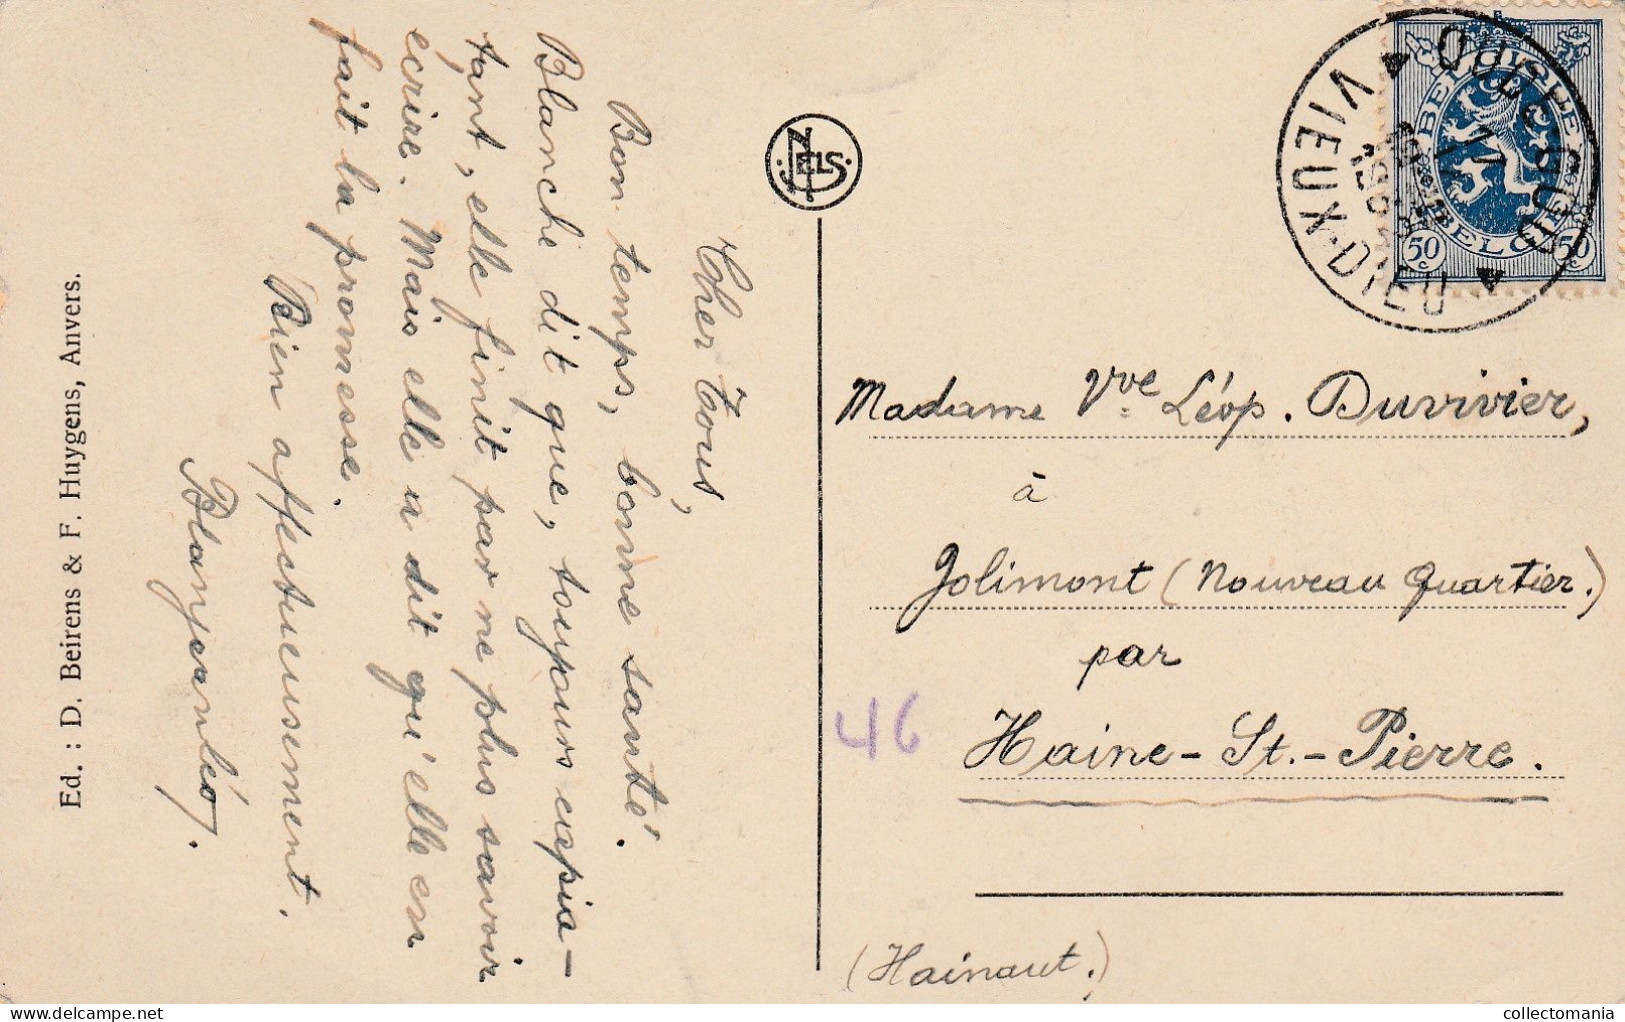 Cher Tous,
Bon temps, bonne santé.
Blanche dit que, toujours copia-
tant, elle finit par ne plus savoir
écrire. Mais elle a dit qu'elle en
fait la promesse.
Bien affectueusement.
Blanjeanléo.
Ed. : D. Beirens & F. Huygens, Anvers.
NELS
BELGIQUE
BELGIE
50 c
50 c
VIEUX-DIEU
OUDE GOD
Madame Vve Léop. Duvivier,
à
Jolimont (Nouveau Quartier.)
par
Haine-St.-Pierre.
(Hainaut.)
46
collectomania